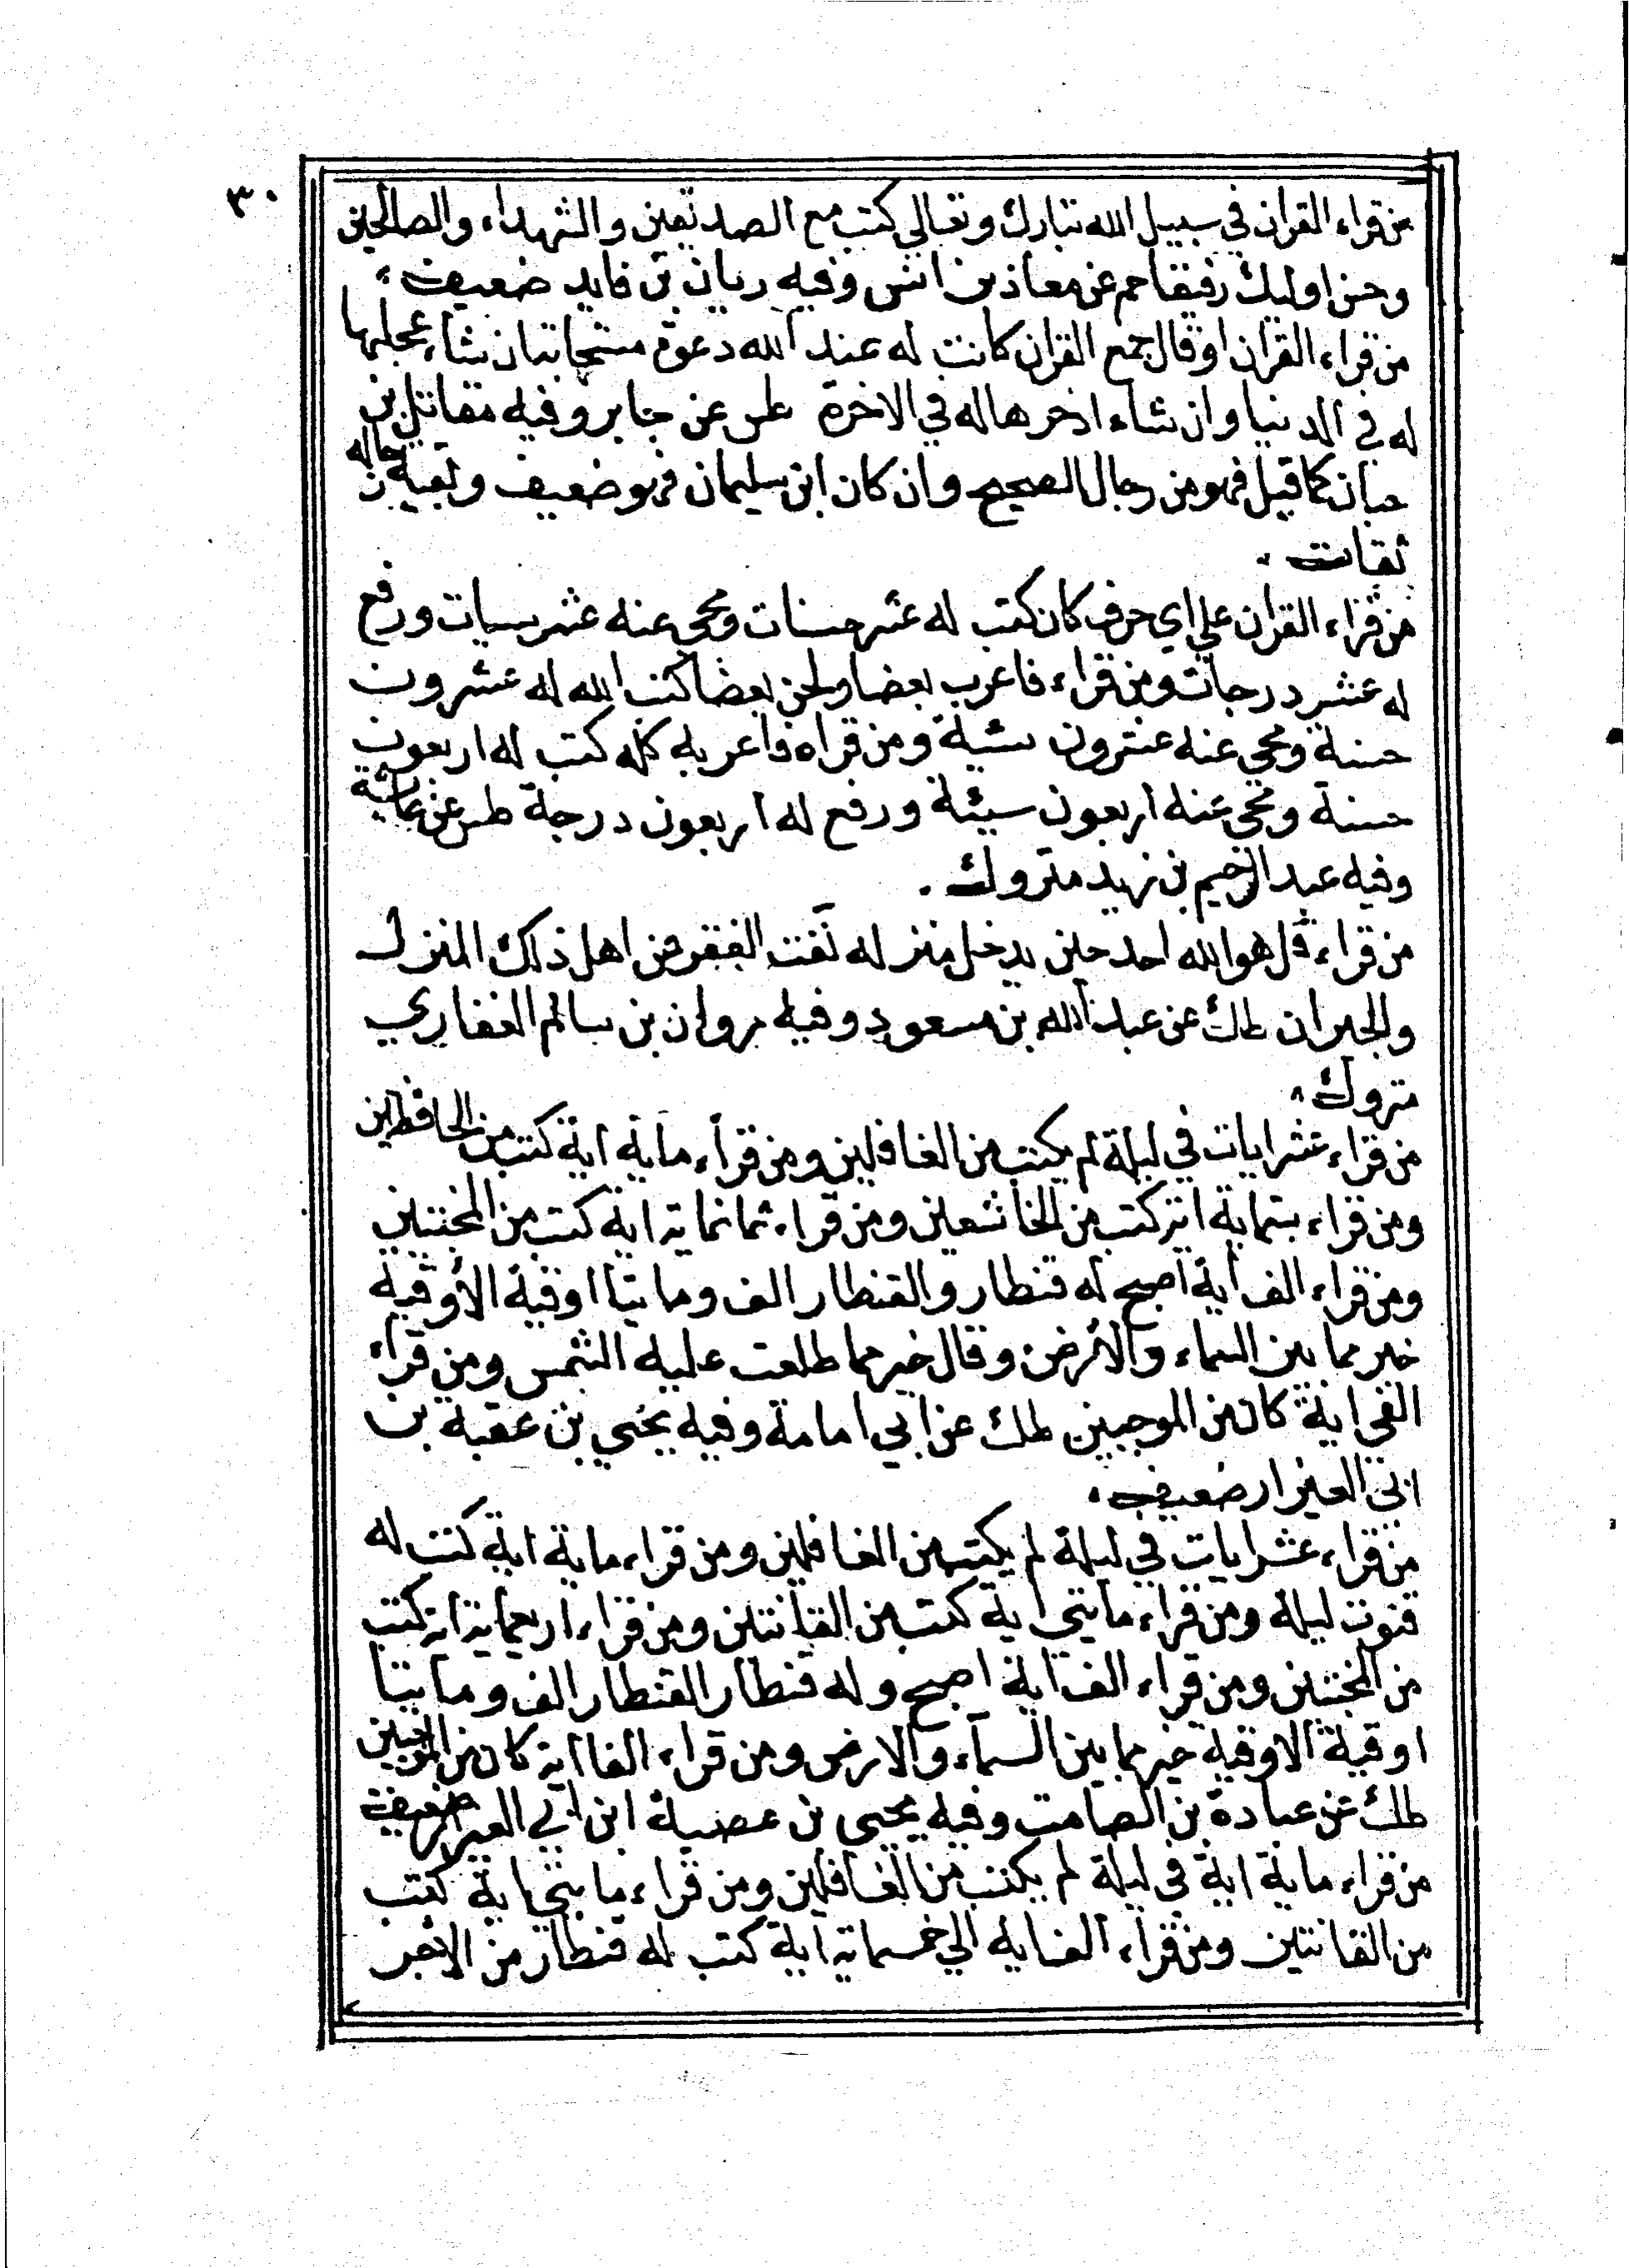 ٣٠
من قراء القران في سبيل الله تبارك وتعالي كتب مع الصديقين والشهداء والصالحين
وحسن اوليك رفيقا حم عن معاذ بن انس وفيه ريان بن فايد ضعيف
من قراء القران او قال جمع القران كانت له عند الله دعوة مستجابة ان شاء عجلها
له في الدنيا وان شاء ادخرها له في الاخرة طس عن جابر وفيه مقاتل بن
حبان كما قيل فهو من رجال الصحيح وان كان ابن سليمان فهو ضعيف وبقية رجاله
ثقات .
من قراء القران علي اي حرف كان كتب له عشر حسنات ومحي عنه عشر سيات ورفع
له عشر درجات ومن قراء فاعرب بعضا ولحن بعضا كتب الله له عشرون
حسنة ومحي عنه عشرون سئية ومن قراه فاعربه كله كتب له اربعون
حسنة ومحي عنه اربعون سيئة ورفع له اربعون درجة طس عن عائشة
وفيه عبد الرحيم بن زيد متروك .
من قراء قل هو الله احد حين يدخل منزله نفت الفقر من اهل ذلك المنزل
والجيران طك عن عبد الله بن مسعود وفيه مروان بن سالم الغفاري
متروك
من قراء عشر ايات في ليلة لم يكتب من الغافلين ومن قراء ماية اية كتب من الحافظين
ومن قراء ستماية اية كتب من الخاشعين ومن قراء ثمانماية اية كتب من المخبتين
ومن قراء الف اية اصبح له قنطار والقنطار الف ومايتا اوقية الأوقية
خير مما بين السماء والأرض وقال خير مما طلعت عليه الشمس ومن قراء
الفي اية كان من الموجبين طك عن ابي امامة وفيه يحيي بن عقبة بن
ابي العيزار ضعيف .
من قراء عشر ايات في ليلة لم يكتب من الغافلين ومن قراء ماية اية كتب له
قنوت ليلة ومن قراء مايتي اية كتب من القانتين ومن قراء اربعماية اية كتب
من المخبتين ومن قراء الف اية اصبح وله قنطار القنطار الف ومايتا
اوقية الاوقية خير مما بين السماء والارض ومن قراء الفا اية كان من الموجبين
طك عن عبادة بن الصامت وفيه يحيي بن عقبة ابن ابي العيزار ضعيف
من قراء ماية اية في ليلة لم يكتب من الغافلين ومن قراء مايتي اية كتب
من القانتين ومن قراء الف اية الي خمسماية اية كتب له قنطار من الاجر